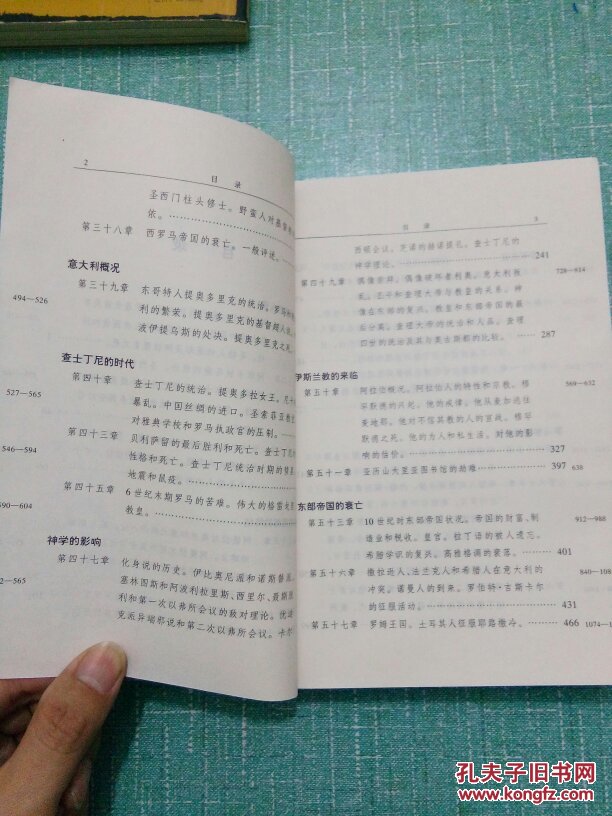 2
目 录
圣西门柱头修士。野蛮人对基督教
依。
第三十八章 西罗马帝国的衰亡。一般评述。
意大利概况
第三十九章 东哥特人提奥多里克的统治。罗马和
494—526
利的繁荣。提奥多里克的基督
波伊提乌斯的处决。提奥多里克之死
查士丁尼的时代
第四十章 查士丁尼的统治。提奥多拉女王。尼卡
527—565
暴乱。中国丝绸的进口。圣索菲亚教
对雅典学校和罗马执政官的压制。
第四十三章 贝利萨留的最后胜利和死亡。查士丁尼
546—594
性格和死亡。查士丁尼统治时期的彗星
地震和鼠疫。
第四十五章 6世纪末期罗马的苦难。伟大的格雷戈里
590—604
教皇。
神学的影响
第四十七章 化身说的历史。伊比奥尼派和诺斯替派
2—565
塞林图斯和阿波利拉里斯、西里尔、聂斯
利和第一次以弗所会议的敌对理论。优迪
克派异端邪说和第二次以弗所会议。卡尔
目 录
3
西顿会议。芝诺的赫诺提孔。查士丁尼的
神学理论。 241
第四十九章 偶像崇拜。偶像破坏者利奥。意大利叛
728—814
乱。丕平和查理大帝与教皇的关系。神
像在东部的复兴。教皇和东部帝国的最
后分离。查理大帝的统治和人品。查理
四世的统治及其与奥古斯都的比较。 287
伊斯兰教的来临
第五十章 阿拉伯概况。阿拉伯人的特性和宗教。穆
569—632
罕默德的兴起。他的戒律。他从麦加逃往
麦地那。他对不信其教的人的宣战。穆罕
默德之死。他的为人和私生活。对他的影
响的估价。 327
第五十一章 亚历山大里亚图书馆的劫难 397 638
东部帝国的衰亡
第五十三章 10世纪时东部帝国状况。帝国的财富、制
912—988
造业和税收。皇宫。拉丁语的被人遗忘。
希腊学识的复兴。高雅格调的衰落。 401
第五十六章 撒拉逊人、法兰克人和希腊人在意大利的
840—108
冲突。诺曼人的到来。罗伯特·吉斯卡尔
的征服活动。 431
第五十七章 罗姆王国。土耳其人征服耶路撒冷。 466 1074—1
孔夫子旧书网
www.kongfz.com